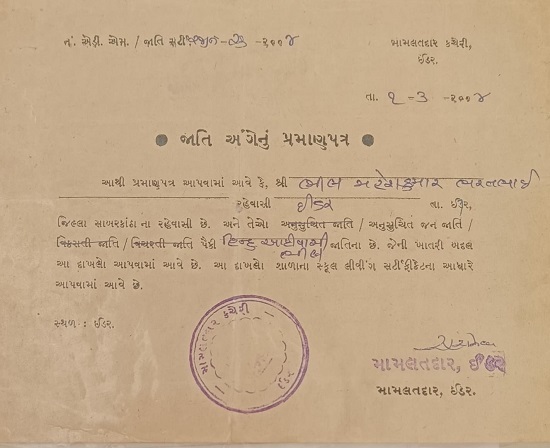 નં. એડી. એમ. / જાતિ સર્ટી -૨૦૦૪
મામલતદાર કચેરી,
ઈડર.
તા. ૧ - ૩ -૨૦૦૪
જાતિ અંગેનું પ્રમાણપત્ર
આથી પ્રમાણપત્ર આપવામાં આવે કે, શ્રી ભીલ નરેશકુમાર ભરતભાઈ
રહેવાસી ઈડર તા. ઈડર,
જિલ્લા સાબરકાંઠા ના રહેવાસી છે. અને તેઓ અનુસુચિત જાતિ / અનુસુચિત જન જાતિ /
વિકસતી જાતિ / વિચરતી જાતિ પૈકી હિન્દુ આદીવાસી જાતિના છે. જેની ખાતરી બદલ
ભીલ
આ દાખલો આપવામાં આવે છે. આ દાખલો શાળાના સ્કૂલ લીવીંગ સર્ટીફીકેટના આધારે
આપવામાં આવે છે.
સ્થળ : ઈડર.
મામલતદાર કચેરી
ઈડર
મામલતદાર, ઈડર
મામલતદાર, ઈડર.